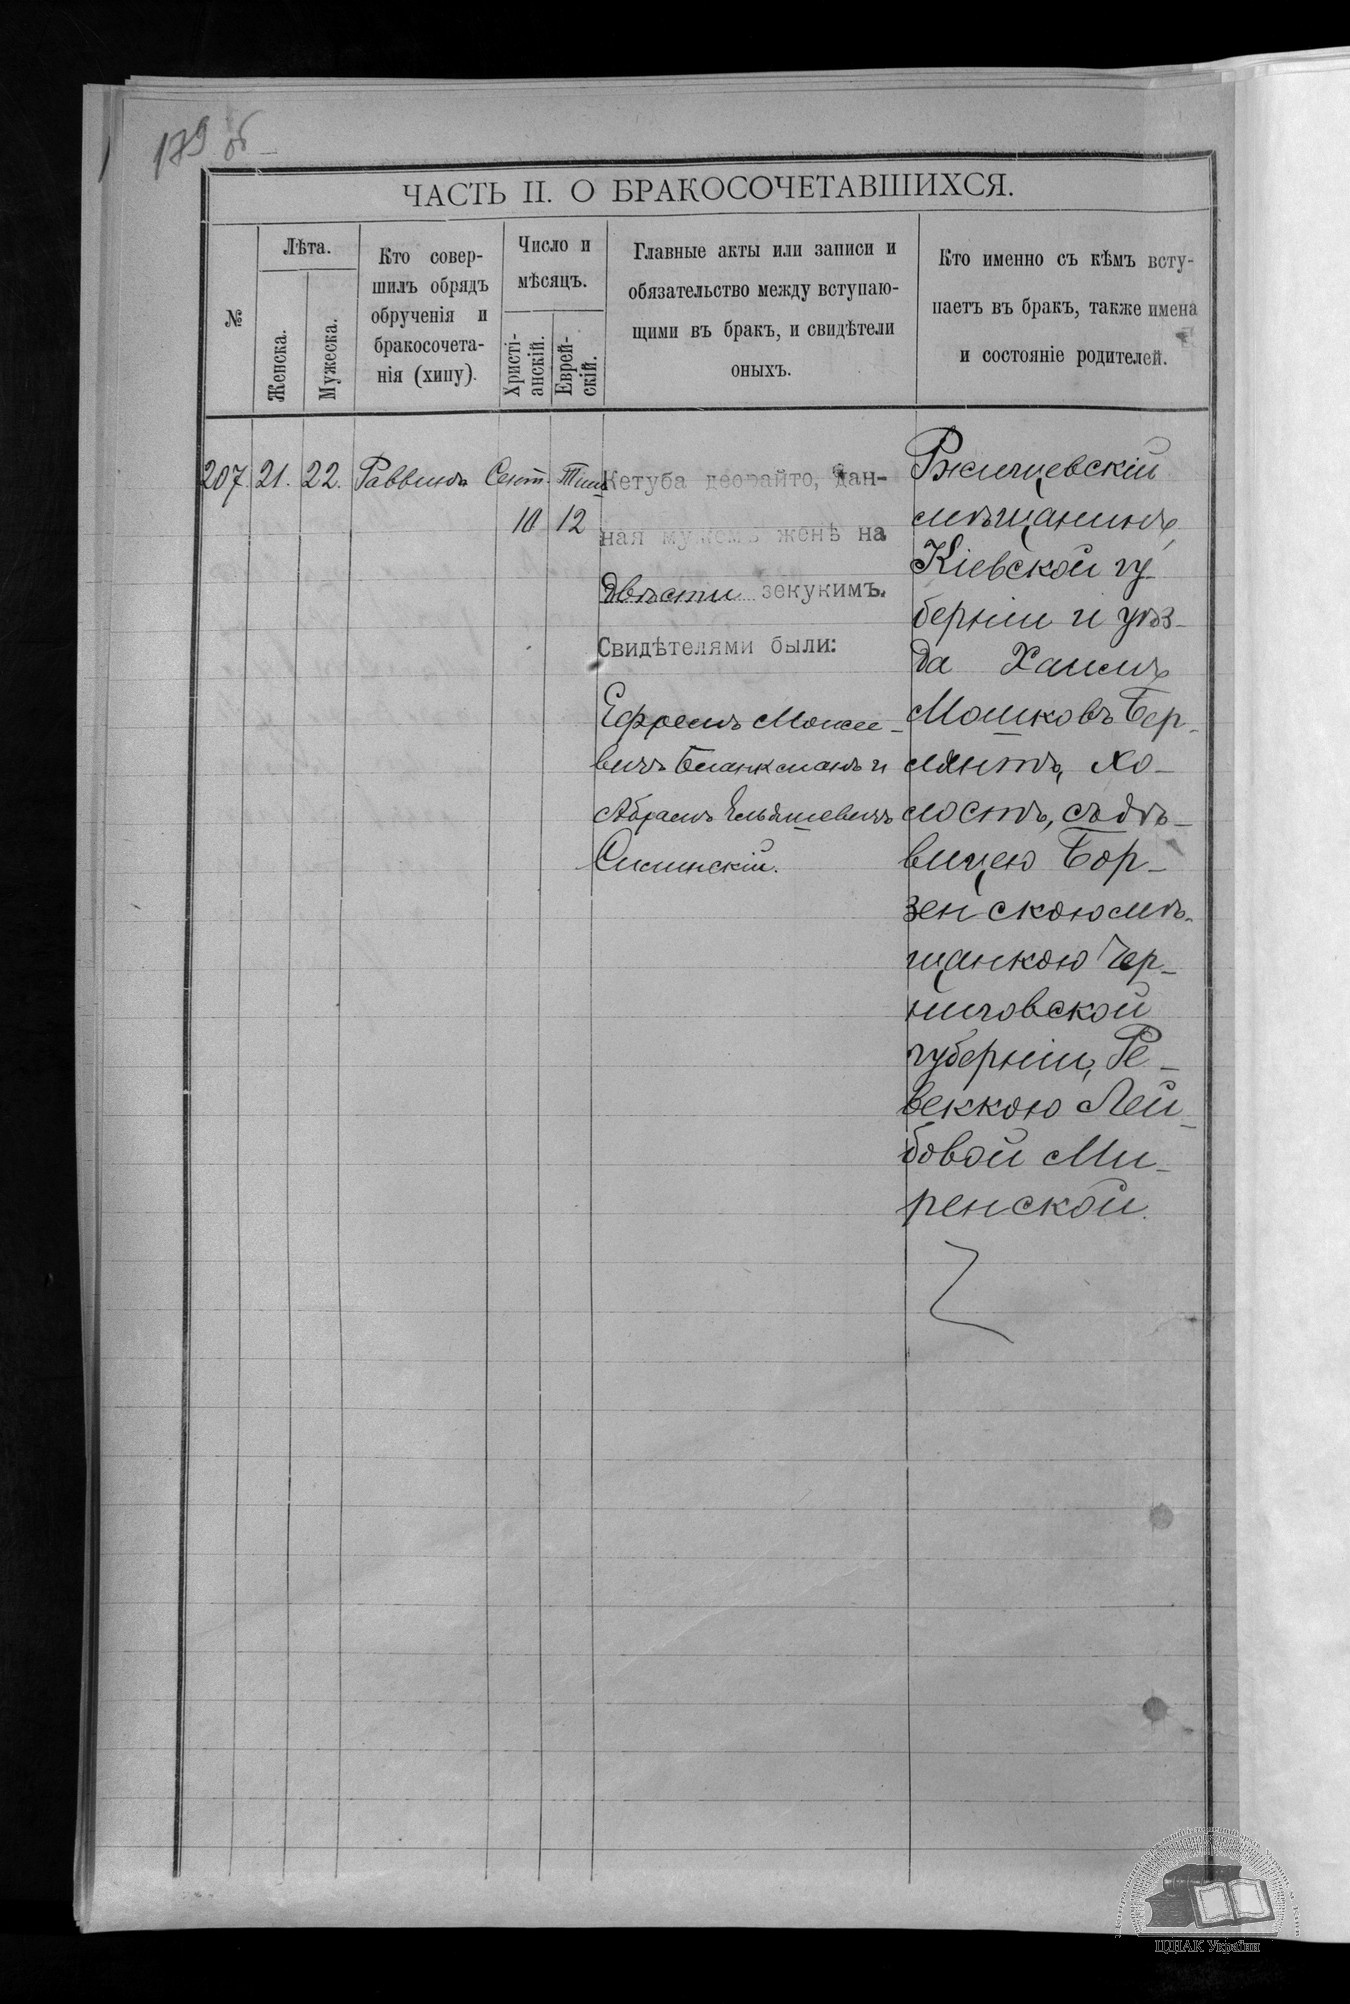 179 об
ЧАСТЬ II. О БРАКОСОЧЕТАВШИХСЯ.
№
Лѣта.
Женска.
Мужеска.
Кто совер-
шилъ обрядъ
обрученія и
бракосочета-
нія (хипу).
Число и
мѣсяцъ.
Христі-
анскій.
Еврей-
скій.
Главные акты или записи и
обязательство между вступаю-
щими въ бракъ, и свидѣтели
оныхъ.
Кто именно съ кѣмъ всту-
паетъ въ бракъ, также имена
и состояніе родителей.
207. 21. 22. Раввинъ Сент. Тиш.
10 12
Кетуба деорайто, дан-
ная мужемъ женѣ на
двѣсти зекукимъ.
Свидѣтелями были:
Ефроемъ Моисе-
вичъ Бланкманъ и
Абрамъ Ельяшевичъ
Ржищевскій
мѣщанинъ,
Кіевской гу-
берніи и уѣз-
да Хаимъ
Мошковъ Бер-
лянтъ, хо-
лостъ, съ дѣ-
вицею Бор-
зенскою мѣ-
щанкою Чер-
ниговской
губерніи, Ре-
веккою Лей-
бовой Ми-
ренской.
ЦДІАК України